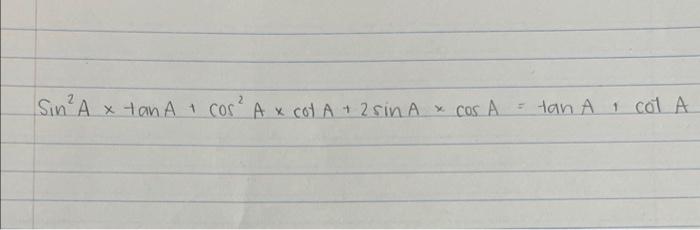 Sin²A × tan A + cos² A × cot A + 2 sin A × cos A = tan A + cot A